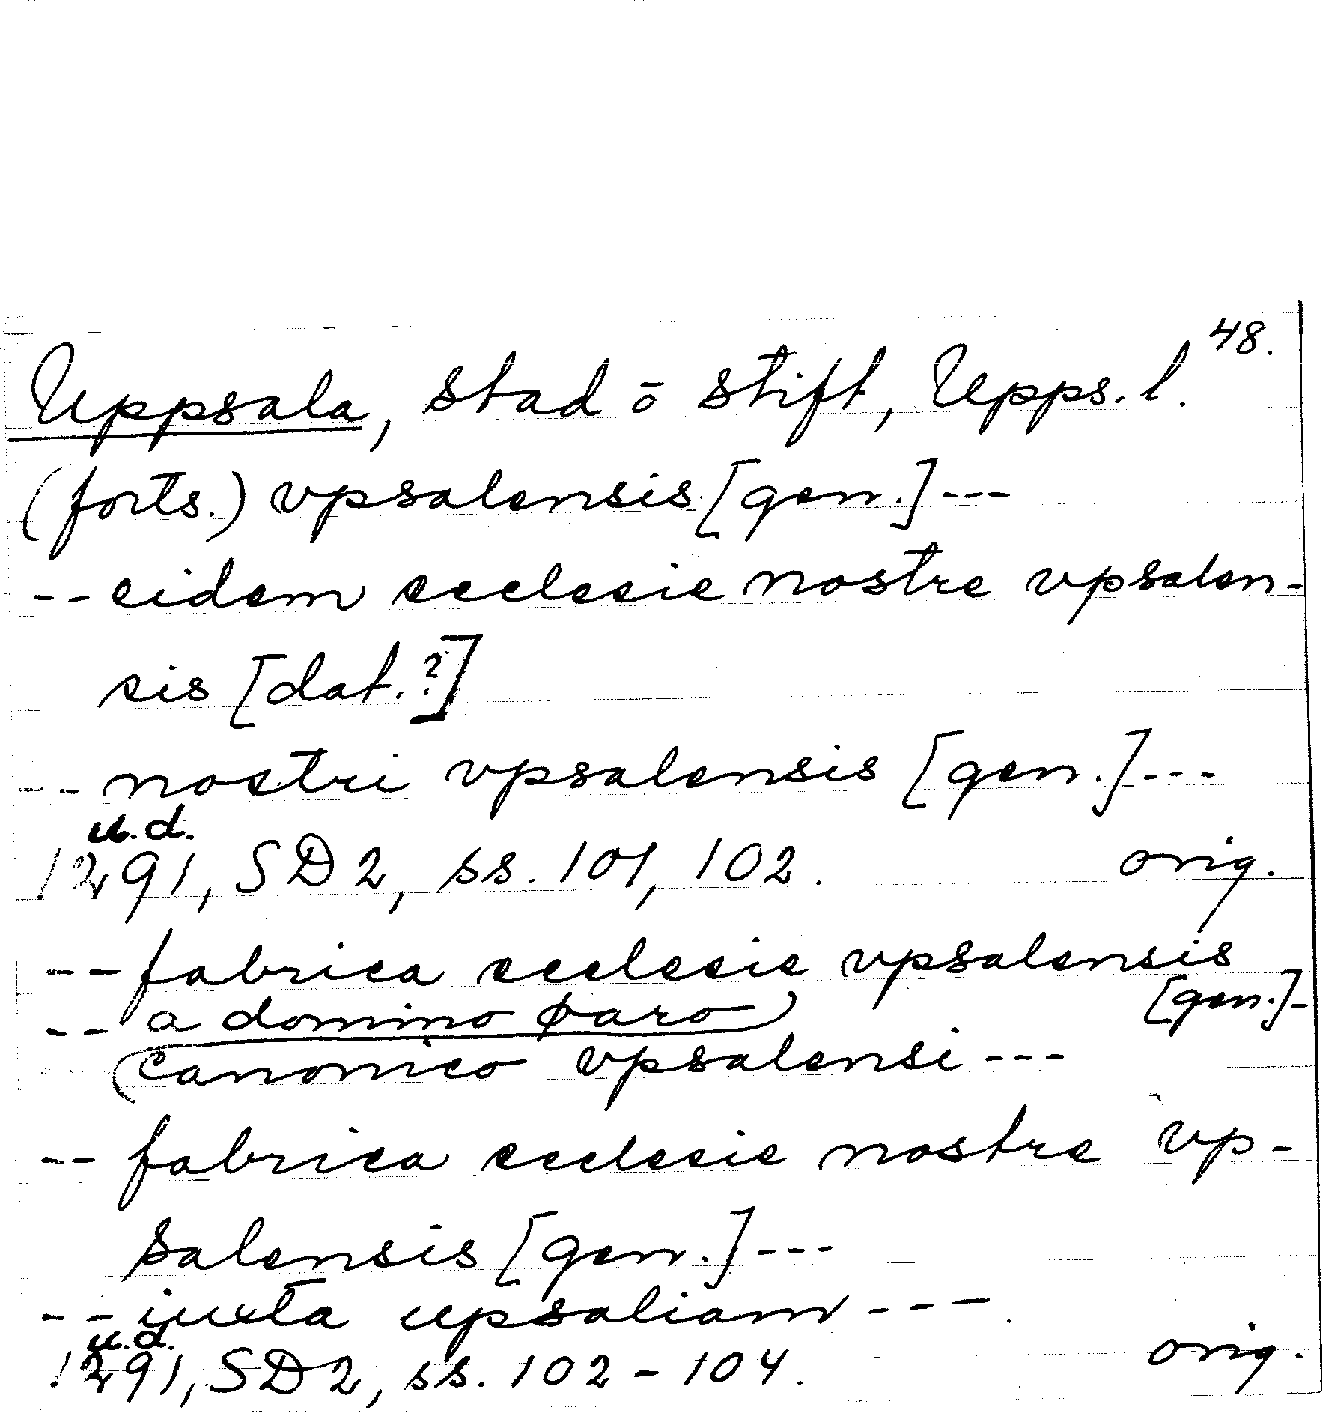 48.
Uppsala, stad o stift, Upps. l.
(forts.) vpsalensis [gen.] ---
-- eidem ecclesie nostre vpsalen-
sis [dat.?]
-- nostri vpsalensis [gen.] ---
u.d.
1291, SD2, ss. 101, 102. orig.
-- fabrica ecclesie vpsalensis
[gen.] -
-- a domino øaro
canonico vpsalensi ---
-- fabrica ecclesie nostre vp-
salensis [gen.] ---
-- iuxta upsaliam ---
u.d.
1291, SD2, ss. 102-104. orig.